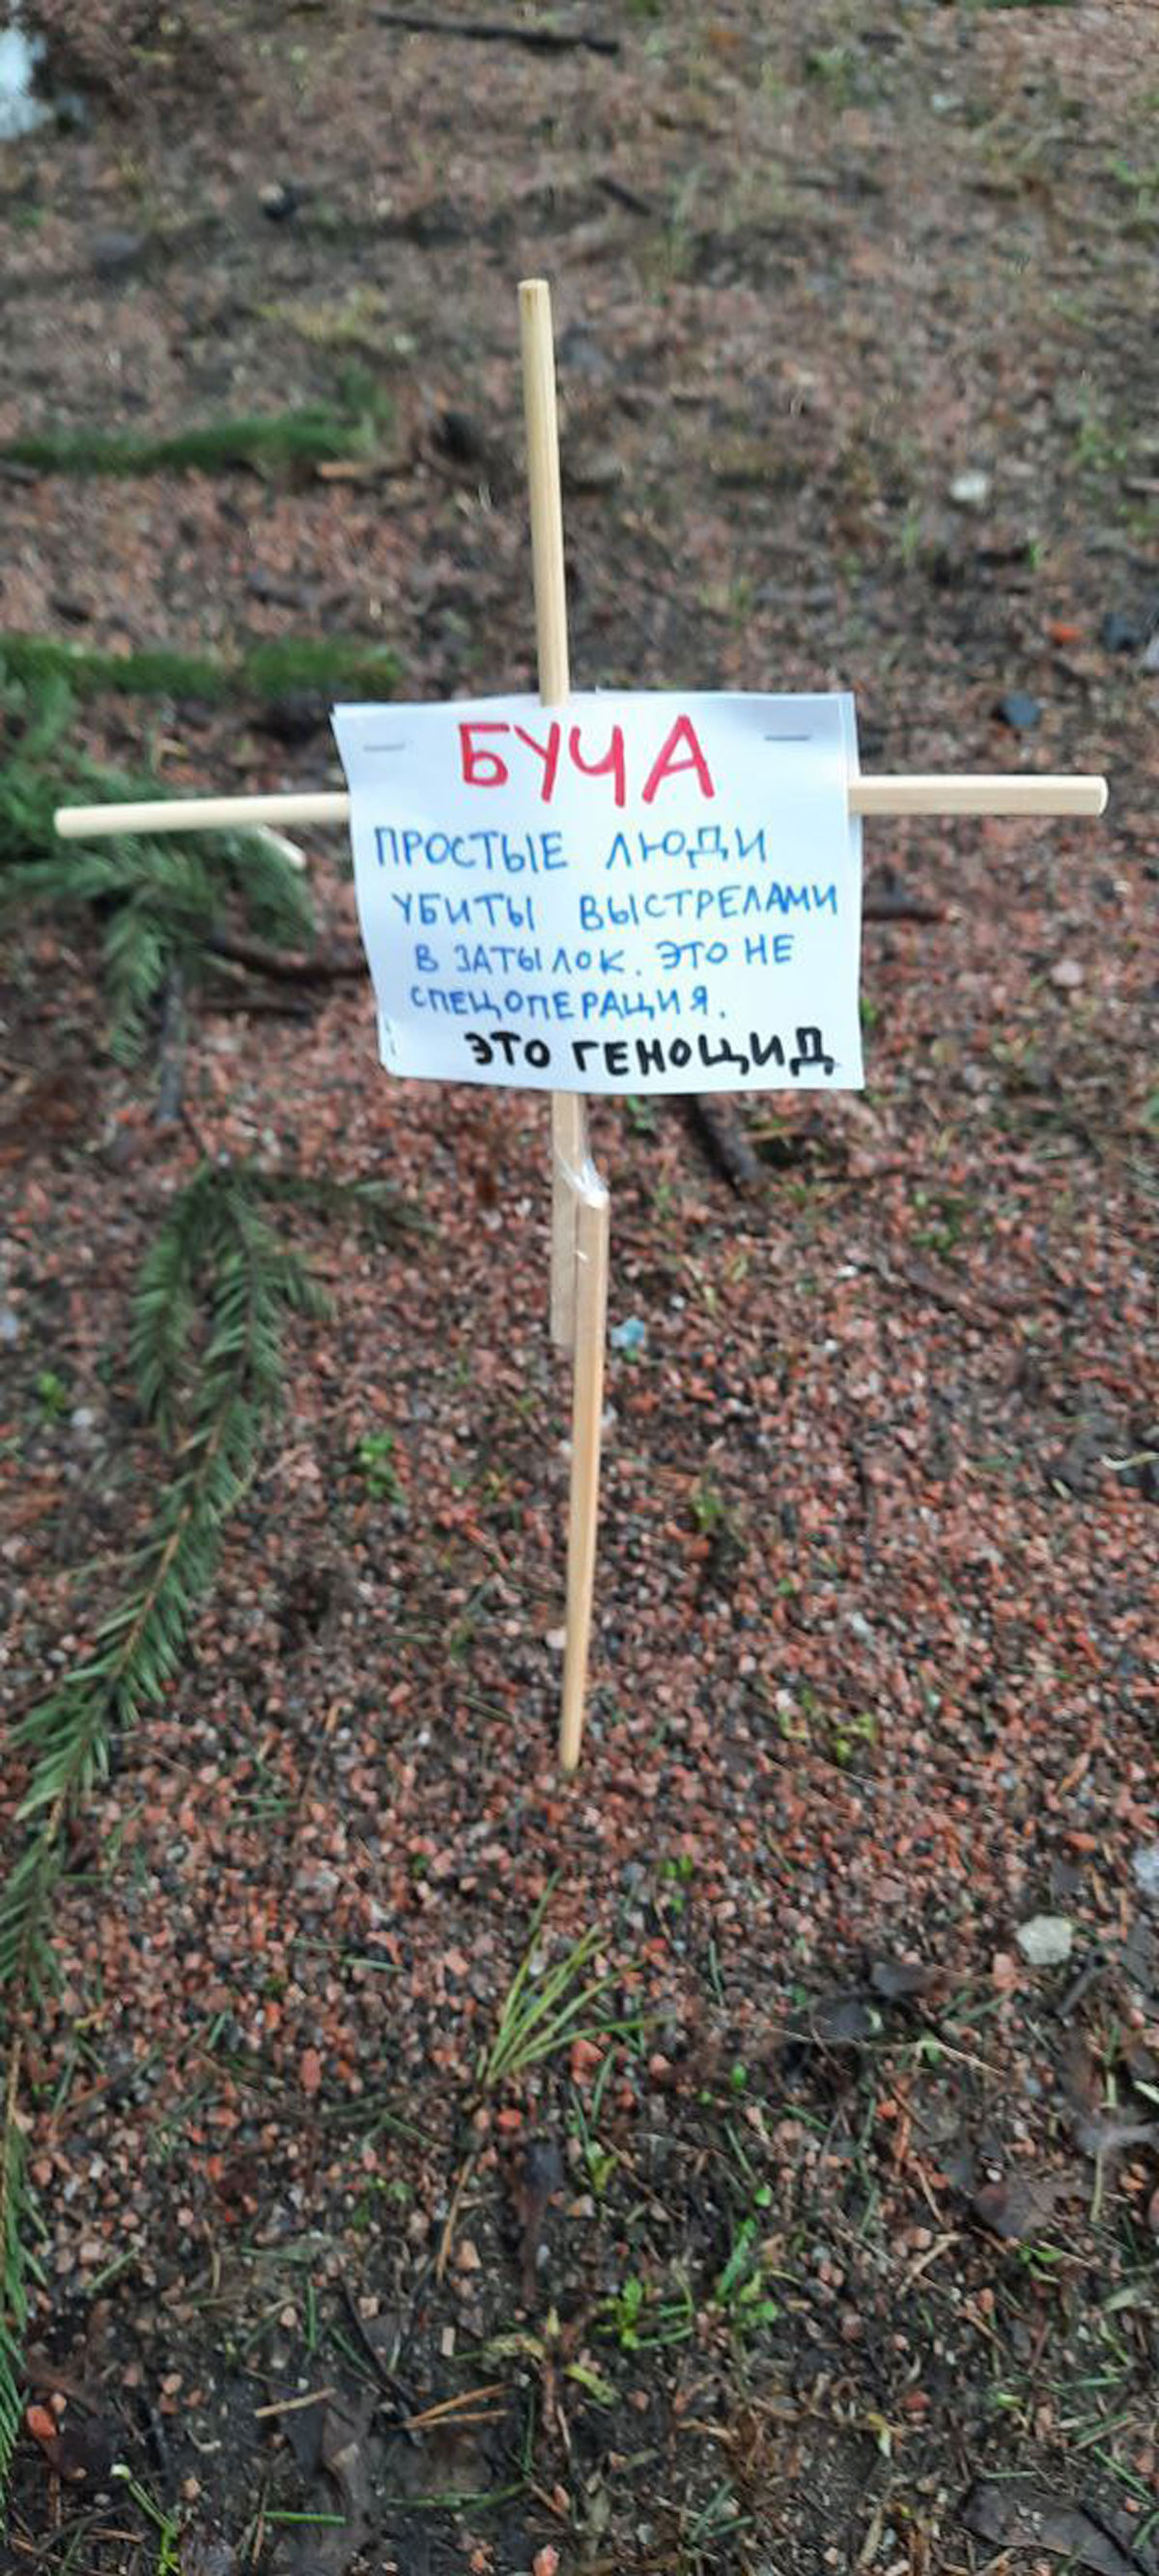 БУЧА
ПРОСТЫЕ ЛЮДИ
УБИТЫ ВЫСТРЕЛАМИ
В ЗАТЫЛОК. ЭТО НЕ
СПЕЦОПЕРАЦИЯ.
ЭТО ГЕНОЦИД